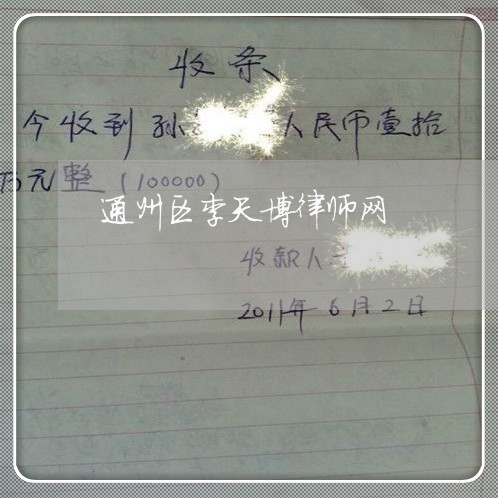 收条
今收到孙人民币壹拾
万元整(100000)
通州区李天博律师网
收款人
2011年6月2日